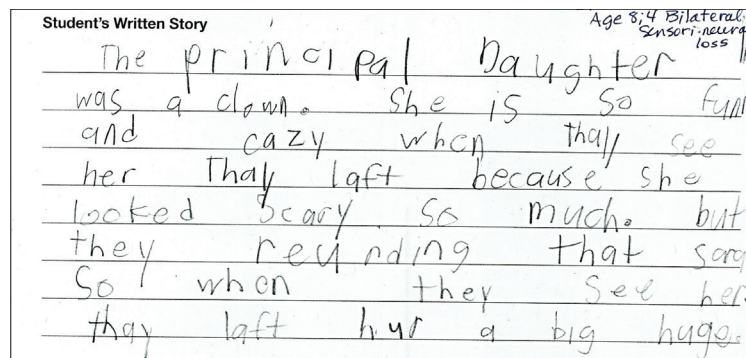 Student's Written Story
Age 8;4 Bilateral
Sensori-neural
loss
The principal Daughter
was a clown. She is so fun
and cazy when thay see
her Thay laft because she
looked scary so much. but
they that
So when they see her
thay laft hur a big huge.